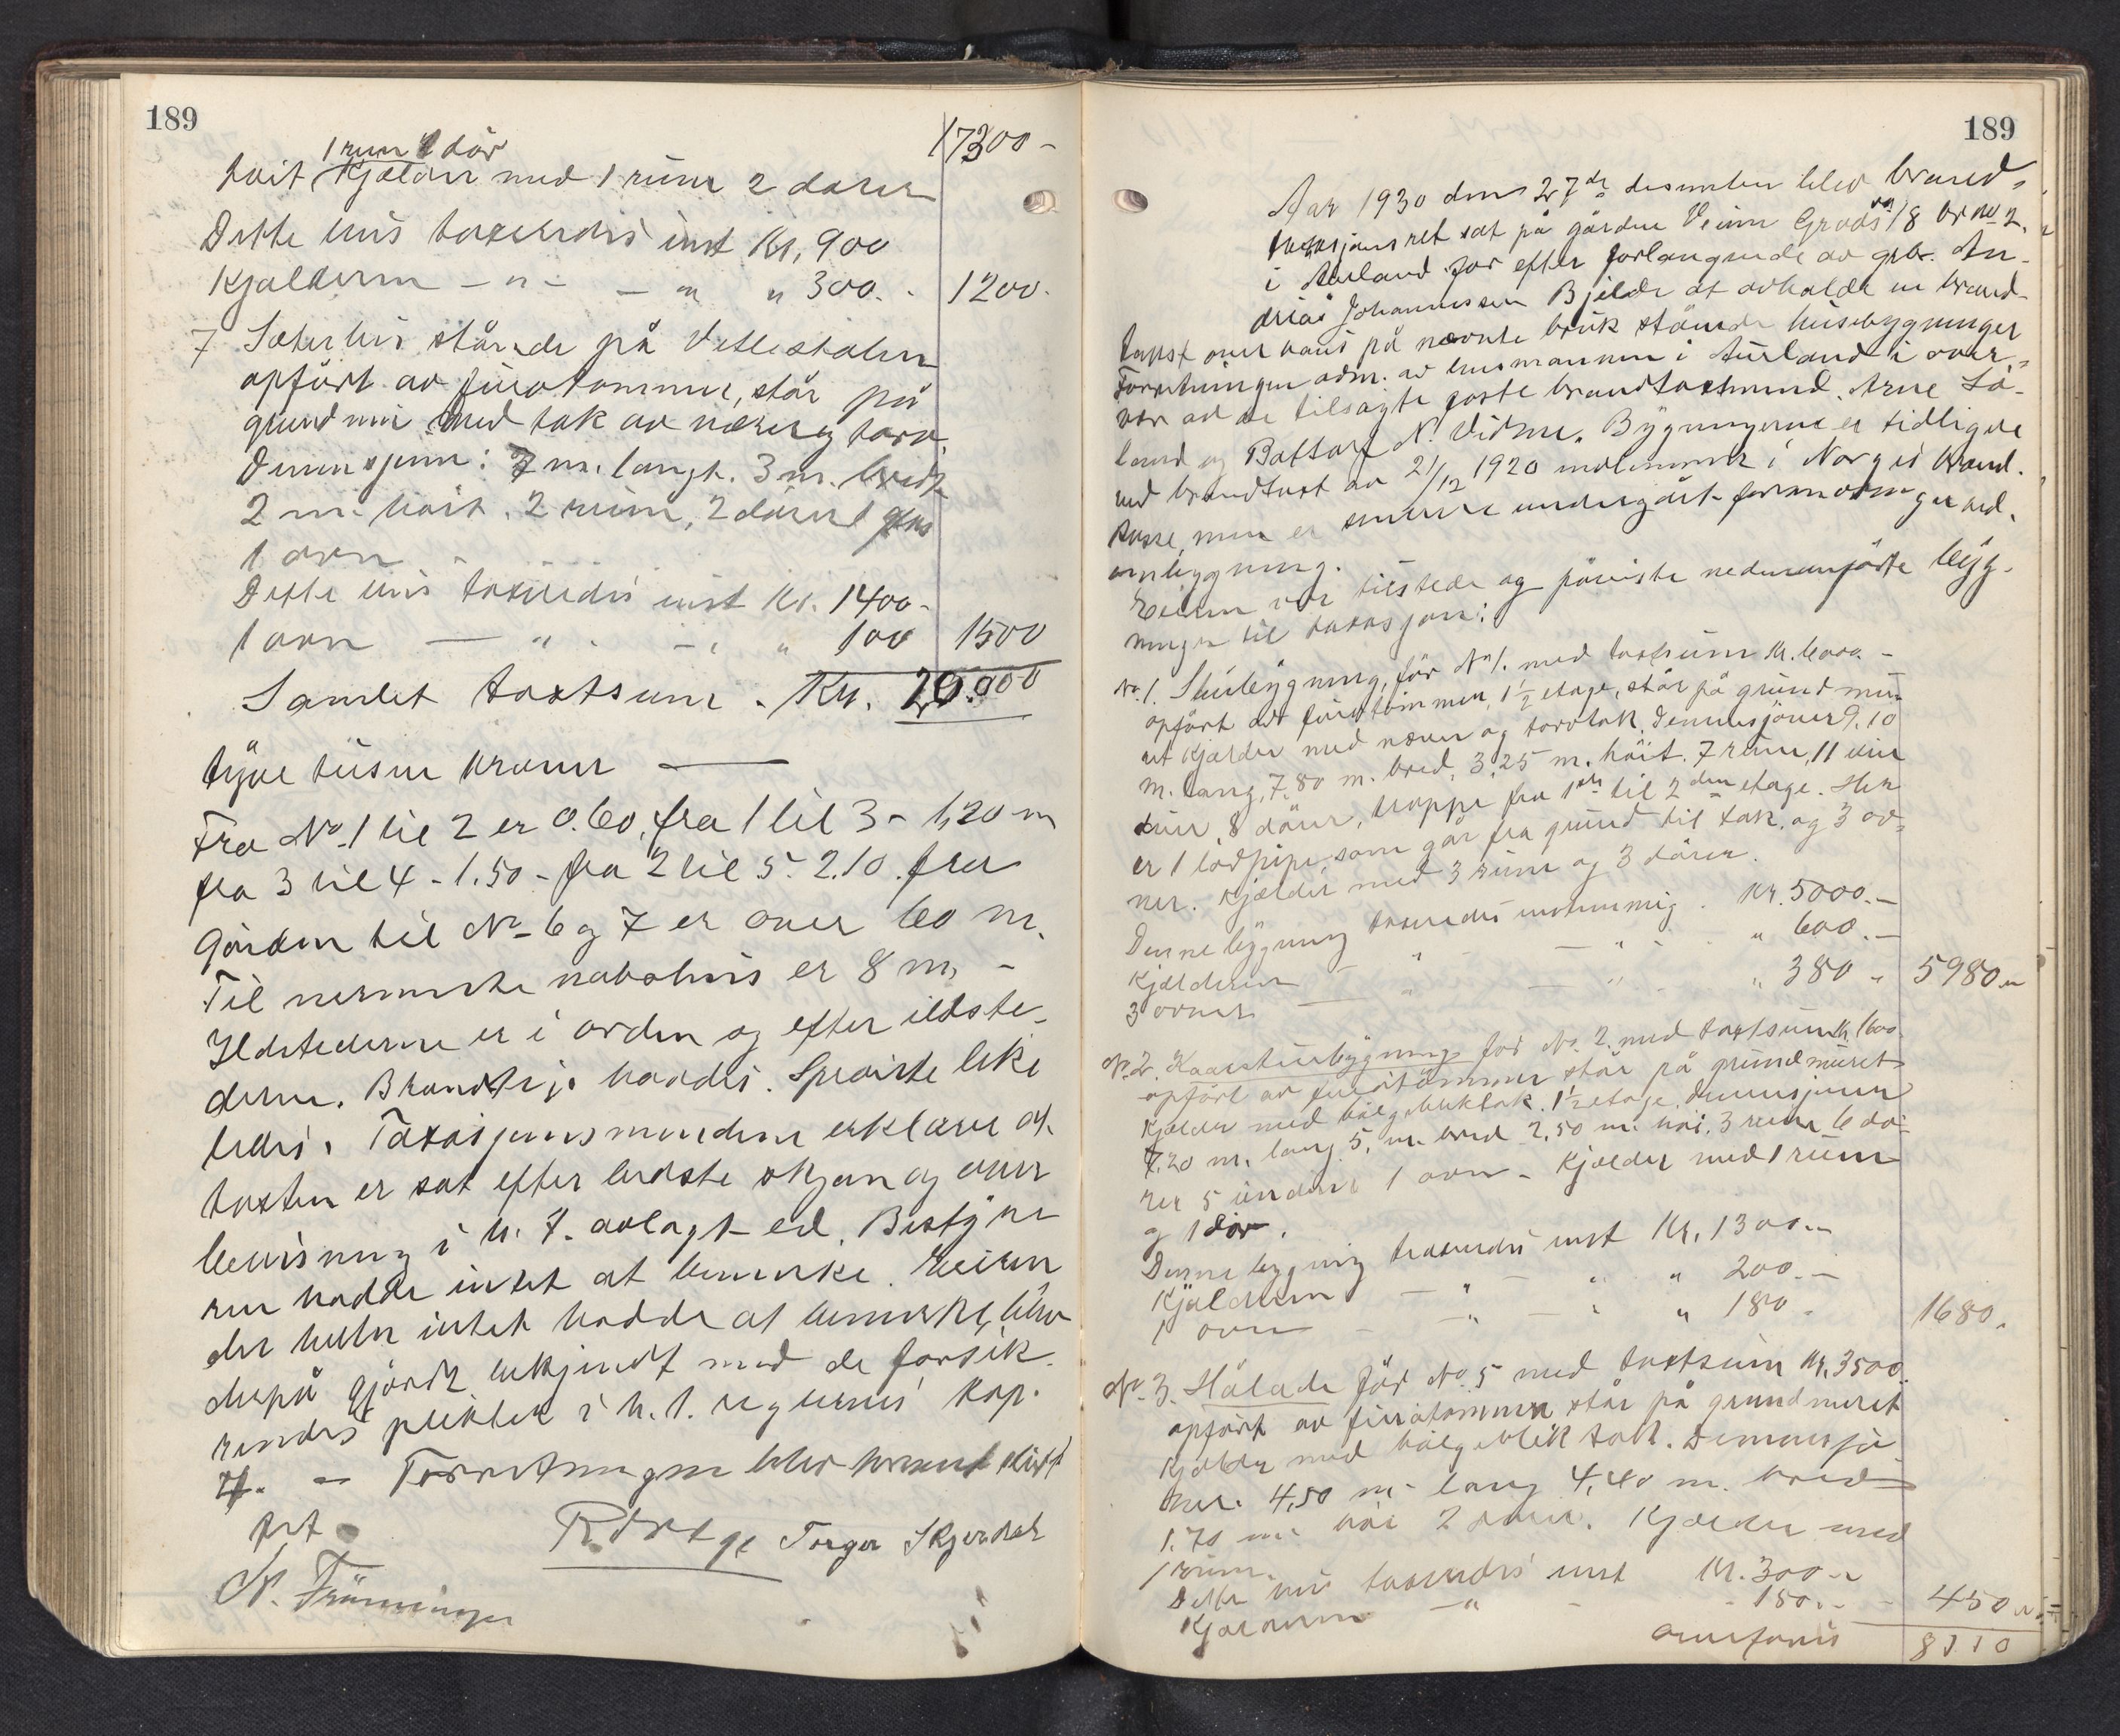 189
17300-
1 rum 1 dør
høit Kjælder med 1 rum 2 dører
Dette hus taxerdes enst Kr, 900
Kjælderen - " - - " " 300. - 1200.
7 Sæterhus stående på Vetlestølen
opført av furutømmer, står på
grundmur med tak av næver og torv.
Dimensjon: 7 m. langt. 3 m. bredt
2 m. høit. 2 rum, 2 dører 1 glas
1 ovn
Dette hus taxerdes enst Kr. 1400-
1 ovn - " - - " " 100 1500
Samlet taxtsum. Kr. 20.000
tyve tusen kroner
Fra No 1 til 2 er 0.60, fra 1 til 3 - 1,20 m
fra 3 til 4 - 1.50 - fra 2 til 5. 2.10. fra
gården til No 6 og 7 er over 60 m.
Til nermeste nabohus er 8 m, -
Ildstederne er i orden og efter ildste-
derne. Brandstige havdes. Speaiste like
ledes. Taxasjonsmendene erklærer at
taxten er sat efter bedste skjøn og over
bevisning i h. t. avlagt ed. Bestyre
ren hadde intet at bemerke. Eieren
der heller intet hadde at bemerke, blev
derpå gjordt bekjendt med de forsik-
rendes plikter i h. t. reglernes kap.
4. - Forretningen blev hermed slut
tet
R Ørstge Torger Skjerdal
N. Frønningen
189
Aar 1930 den 27de desember blev brand-
taxasjonsret sat på gården Veim Grads no 18 br no 2.
i Aurland for efter forlangende av grb. An-
drias Johannessen Bjelde at avholde en brand-
taxst over hans på nævnte bruk stående husebygninger
Forretningen adm. av lensmannen i Aurland i over-
vær av de tilsagte faste brandtaxtmend. Arne Lå-
land og Baftolf N. Vidme. Bygningerne er tidligere
ved brandtaxt av 21/12 1920 indlemmet i Norges brand.
kasse, men er senere undergåt forandringer ved
ombygning.
Eieren var tilstede og påviste nedenanførte byg-
ninger til taxasjon:
No 1. Stuebygning, før No 1. med taxtsum kr. 6000. -
opført av furutømmer, 1 ½ etage, står på grund mu-
ret kjælder med næver og torvtak. Demensjoner 9.10
m. lang, 7.80 m. bred, 3.25 m. høit. 7 rum, 11 vin
duer, 8 dører, trappe fra 1ste til 2den etage. Her
er 1 lodpipe som går fra grund til tak, og 3 ov-
ner. Kjælder med 3 rum og 3 dører.
Denne bygning taxerdes enstemmig. Kr. 5000.-
Kjælderen - " - - " - " 600.-
3 ovner - " - " - " 380 - 5980.-
No. 2. Kaarstuebygning før No. 2. med taxtsum Kr. 1600.
opført av furutømmer står på grundmuret
Kjælder med bølgebliktak. 1 ½ etage. demensjoner
7.20 m. lang 5, m. bred 2,50 m. høi. 3 rum 6 dø-
rer 5 vinduer 1 ovn - Kjælder med 1 rum
og 1 dør.
Denne bygning taxerdes enst Kr. 1300.-
Kjælderen - " - " " 200.-
1 ovn - " - " " 180 - 1680.
No. 3. Hølade før No 5 med taxtsum Kr. 3500.
opført av furutømmer står på grundmuret
Kjælder med bølgeblik tak. Demensjo
ner. 4,50 m. lang 4,40 m. bred
1.70 m. høi 2 dører. Kjælder med
1 rum.
Dette hus taxerdes enst Kr. 300.-
Kjælderen - " - - 150.- - 450.-
overføres 8110